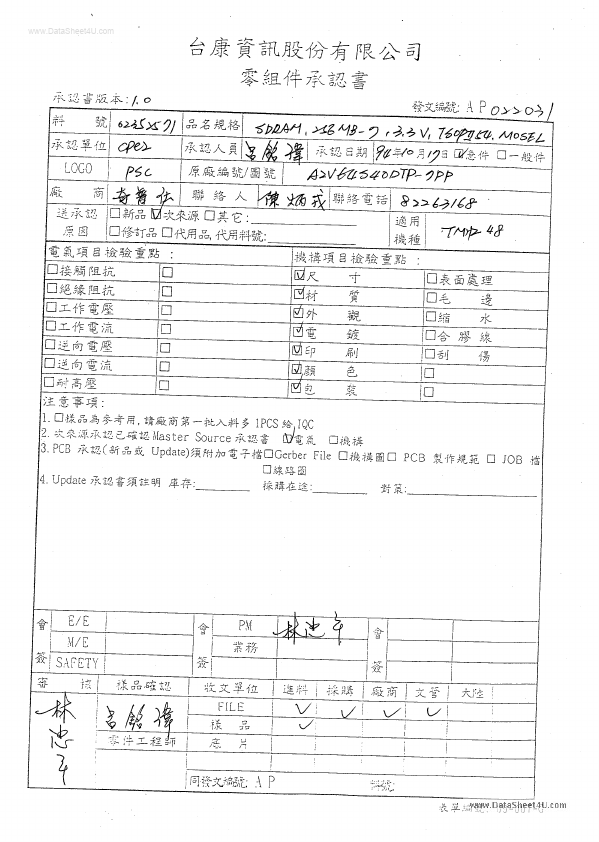 www.DataSheet4U.com
台康資訊股份有限公司
零組件承認書
承認書版本:1.0
發文編號: AP022031
料 號 62352571 品名規格 SDRAM, 256MB-7, 3.3V, TSOPII54, MOSEL
承認單位 CPE2 承認人員 呂銘緯 承認日期 94年10月17日 ☑急件 □一般件
LOGO PSC 原廠編號/圖號 A2V64S40DTP-7PP
廠 商 聯絡人 陳炳 聯絡電話 82263168
送承認 □新品 ☑次來源 □其它: 適用
原因 □修訂品 □代用品,代用料號: 機種 48
電氣項目檢驗重點: 機構項目檢驗重點:
□接觸阻抗 □ ☑尺 寸 □表面處理
□絕緣阻抗 □ ☑材 質 □毛 邊
□工作電壓 □ ☑外 觀 □縮 水
□工作電流 □ ☑電 鍍 □合膠線
□逆向電壓 □ ☑印 刷 □刮 傷
□逆向電流 □ ☑顏 色 □
□耐高壓 □ ☑包 裝 □
注意事項:
1.□樣品為參考用,請廠商第一批入料多1PCS給IQC
2.次來源承認已確認Master Source承認書 ☑電氣 □機構
3.PCB 承認(新品或 Update)須附加電子檔□Gerber File □機構圖□ PCB 製作規範 □ JOB 檔
□線路圖
4.Update承認書須註明 庫存: 採購在途: 對策:
會簽 E/E 會簽 PM 林忠年 會簽
M/E 業務
SAFETY
審 核 樣品確認 收文單位 進料 採購 廠商 文管 大陸
林忠年 呂銘緯 FILE ✓ ✓ ✓ ✓
樣 品 ✓
零件工程師 底 片
同發文編號: AP 料號:
表單編號:
www.DataSheet4U.com